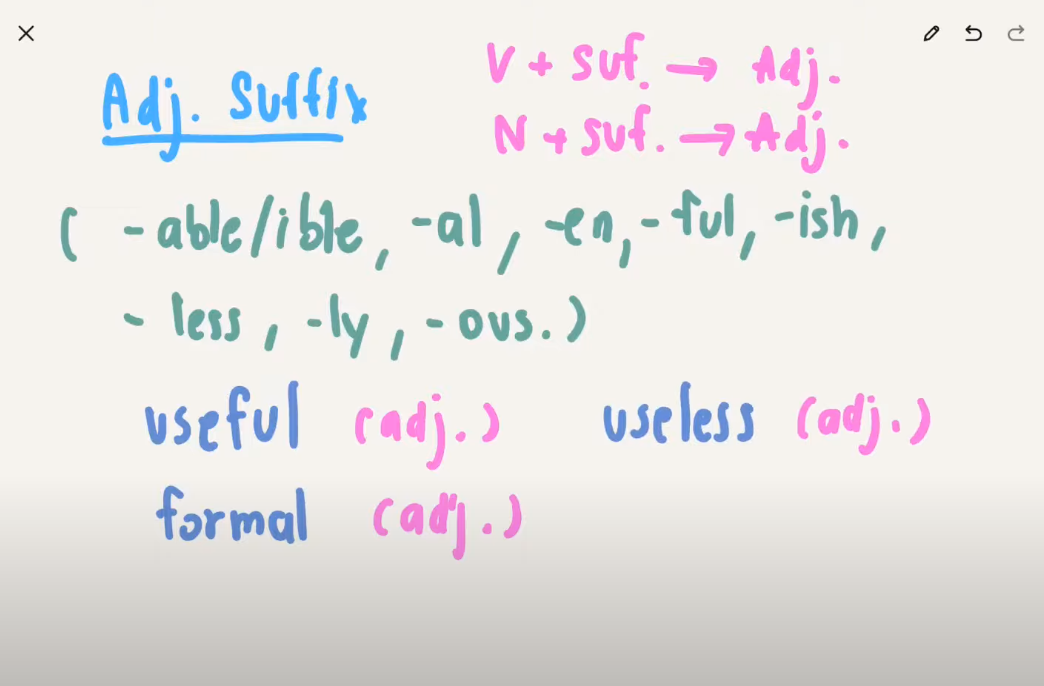 Adj. Suffix
V + suf. → Adj.
N + suf. → Adj.
( - able/ible, -al, -en, - ful, -ish,
- less, -ly, - ous.)
useful (adj.) useless (adj.)
formal (adj.)